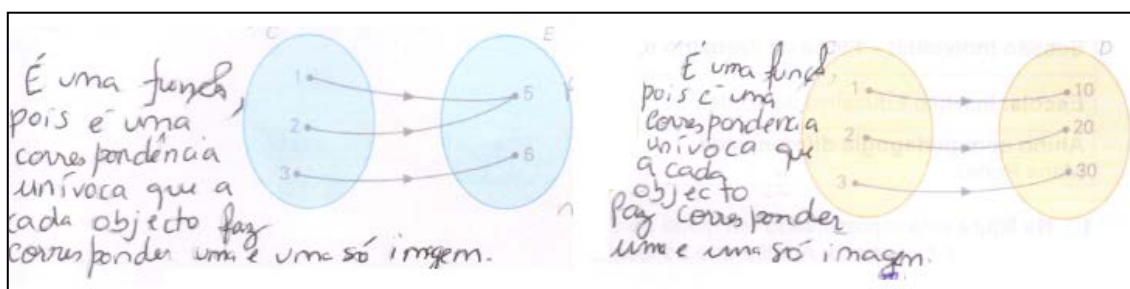 C E
É uma função,
pois é uma
correspondência
unívoca que a
cada objecto faz
corresponder uma e uma só imagem.
1
2
3
5
6
D
É uma função,
pois é uma
correspondência
unívoca que
a cada
objecto
faz corresponder
uma e uma só imagem.
1
2
3
10
20
30